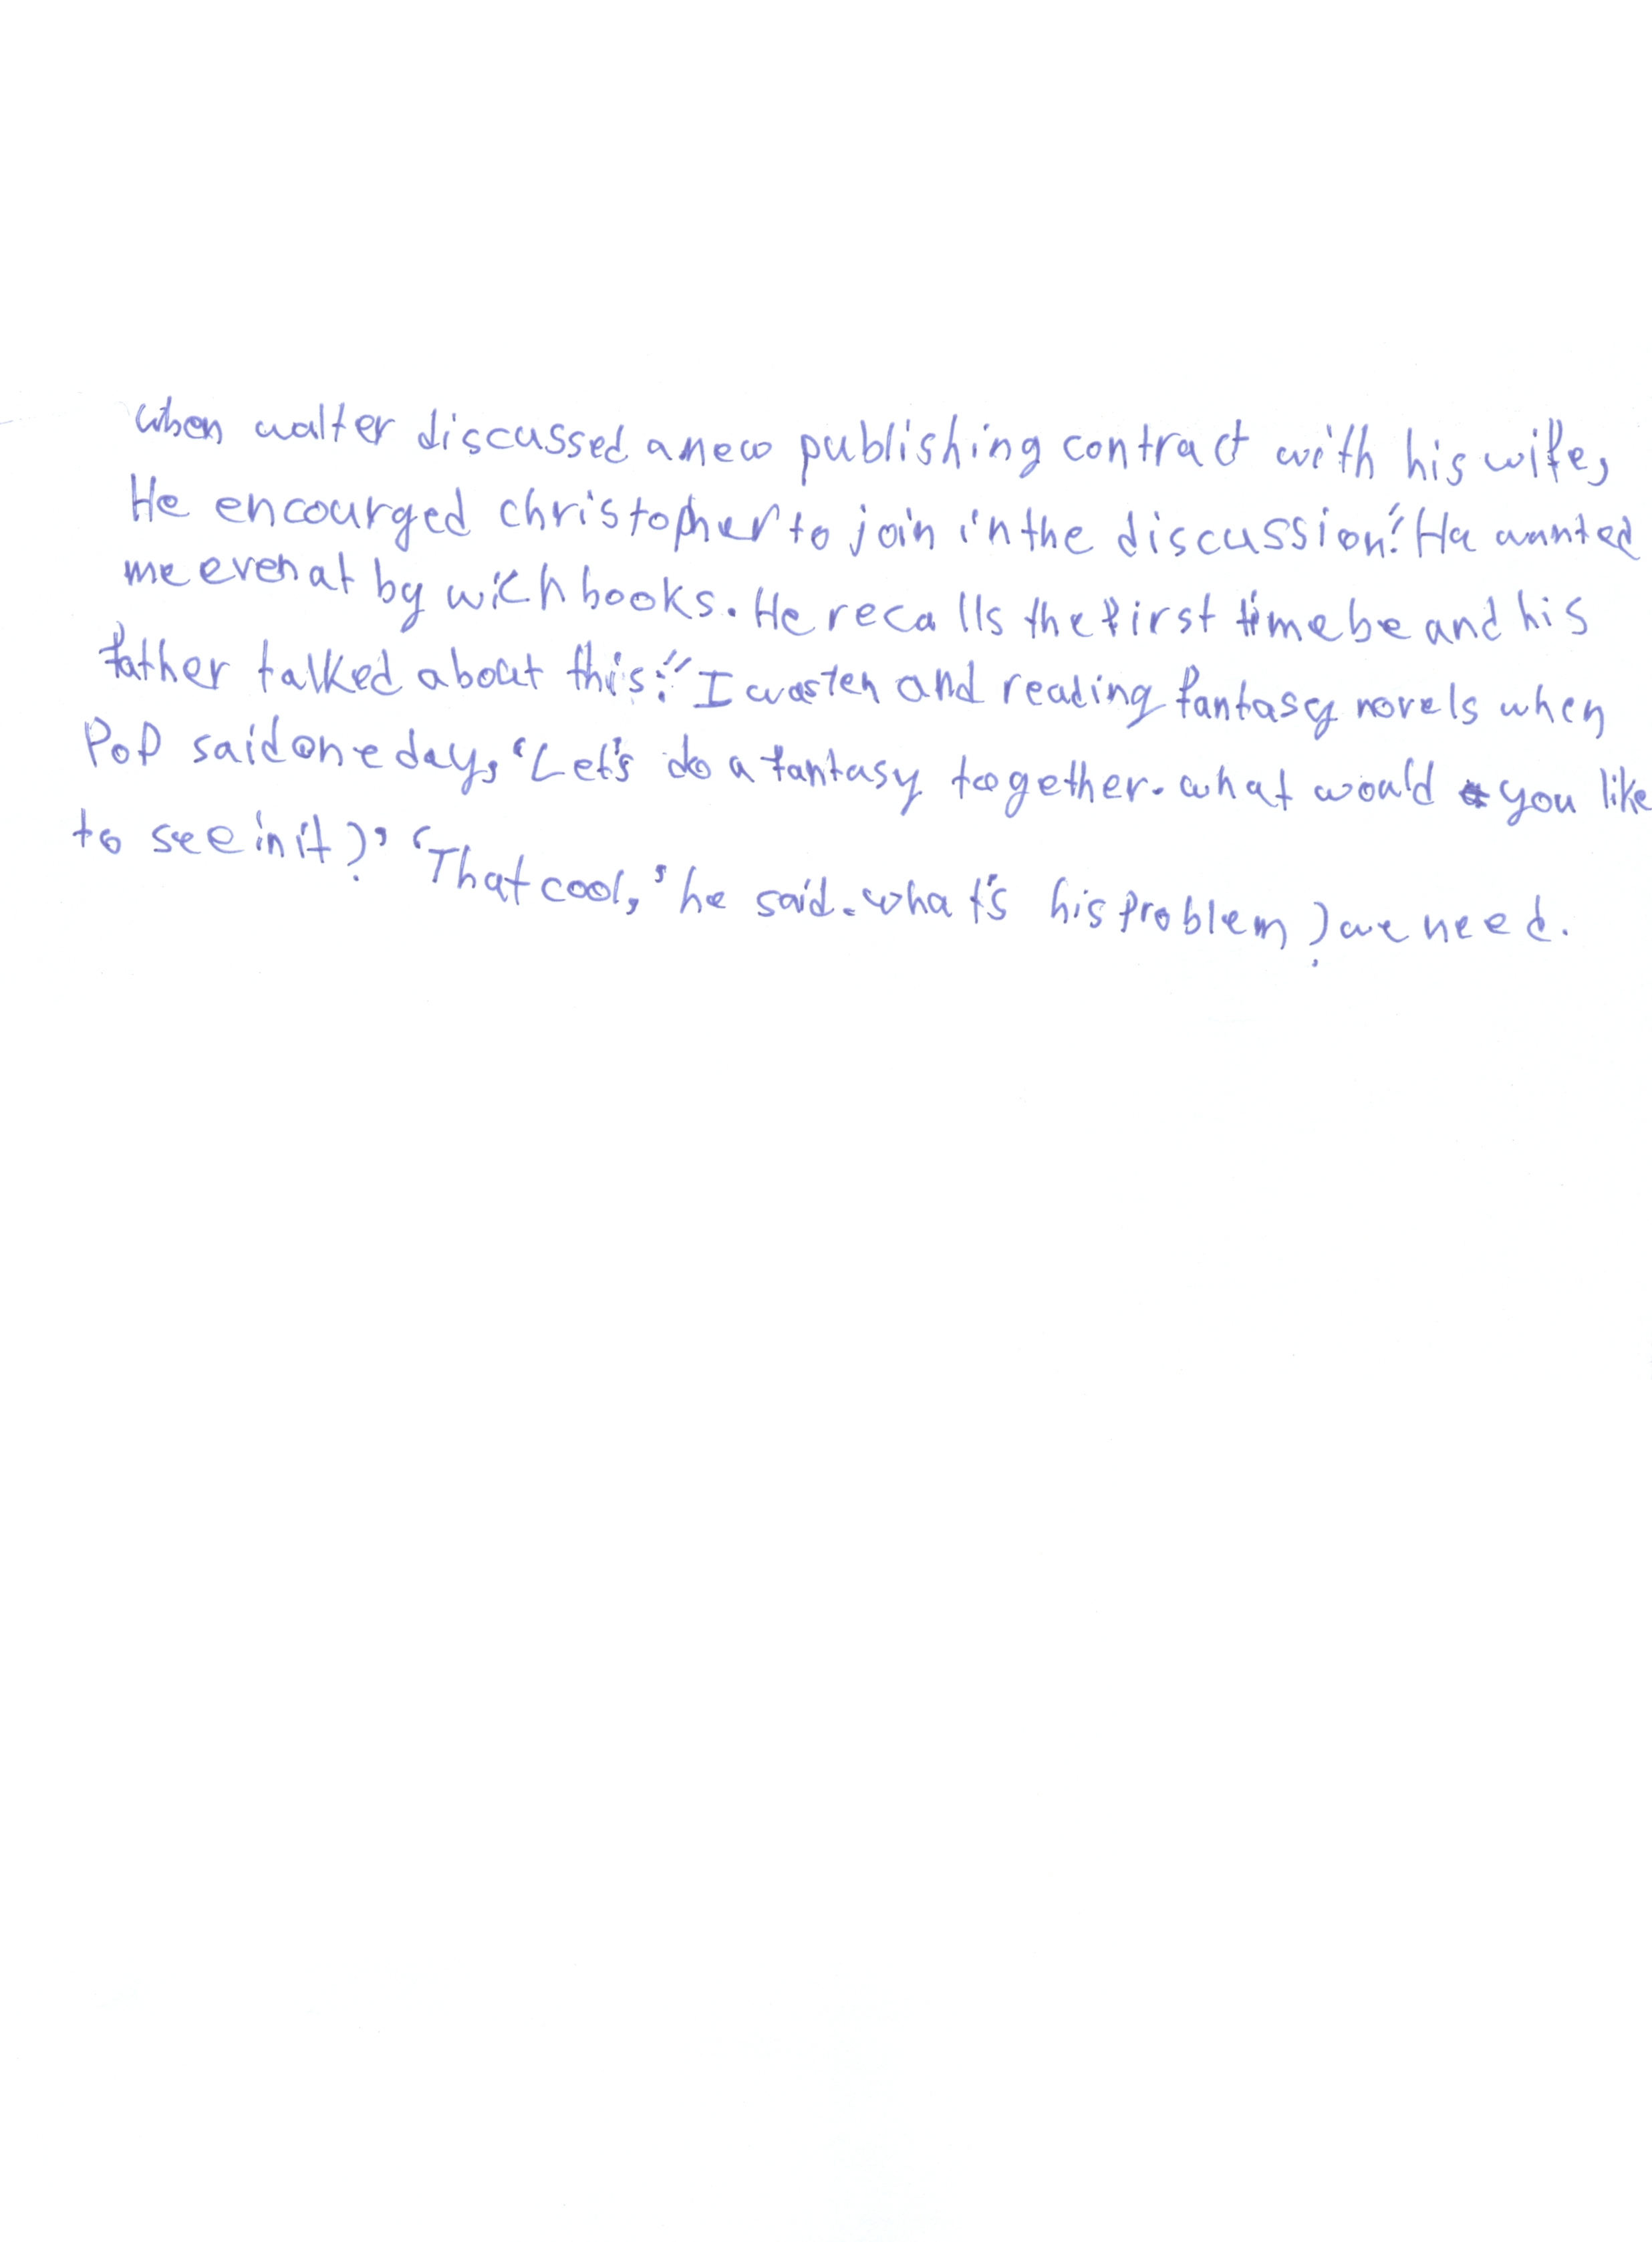 when walter discussed a new publishing contract with his wife,
He encourged christopher to join in the discussion."He wanted
me even at by wich books. He recalls the first time be and his
father talked about this:"I was ten and reading fantasy novels when
PoP said one day, 'Let's do a fantasy together. what would you like
to see in it?' 'That cool,' he said. what's his problem? we need.